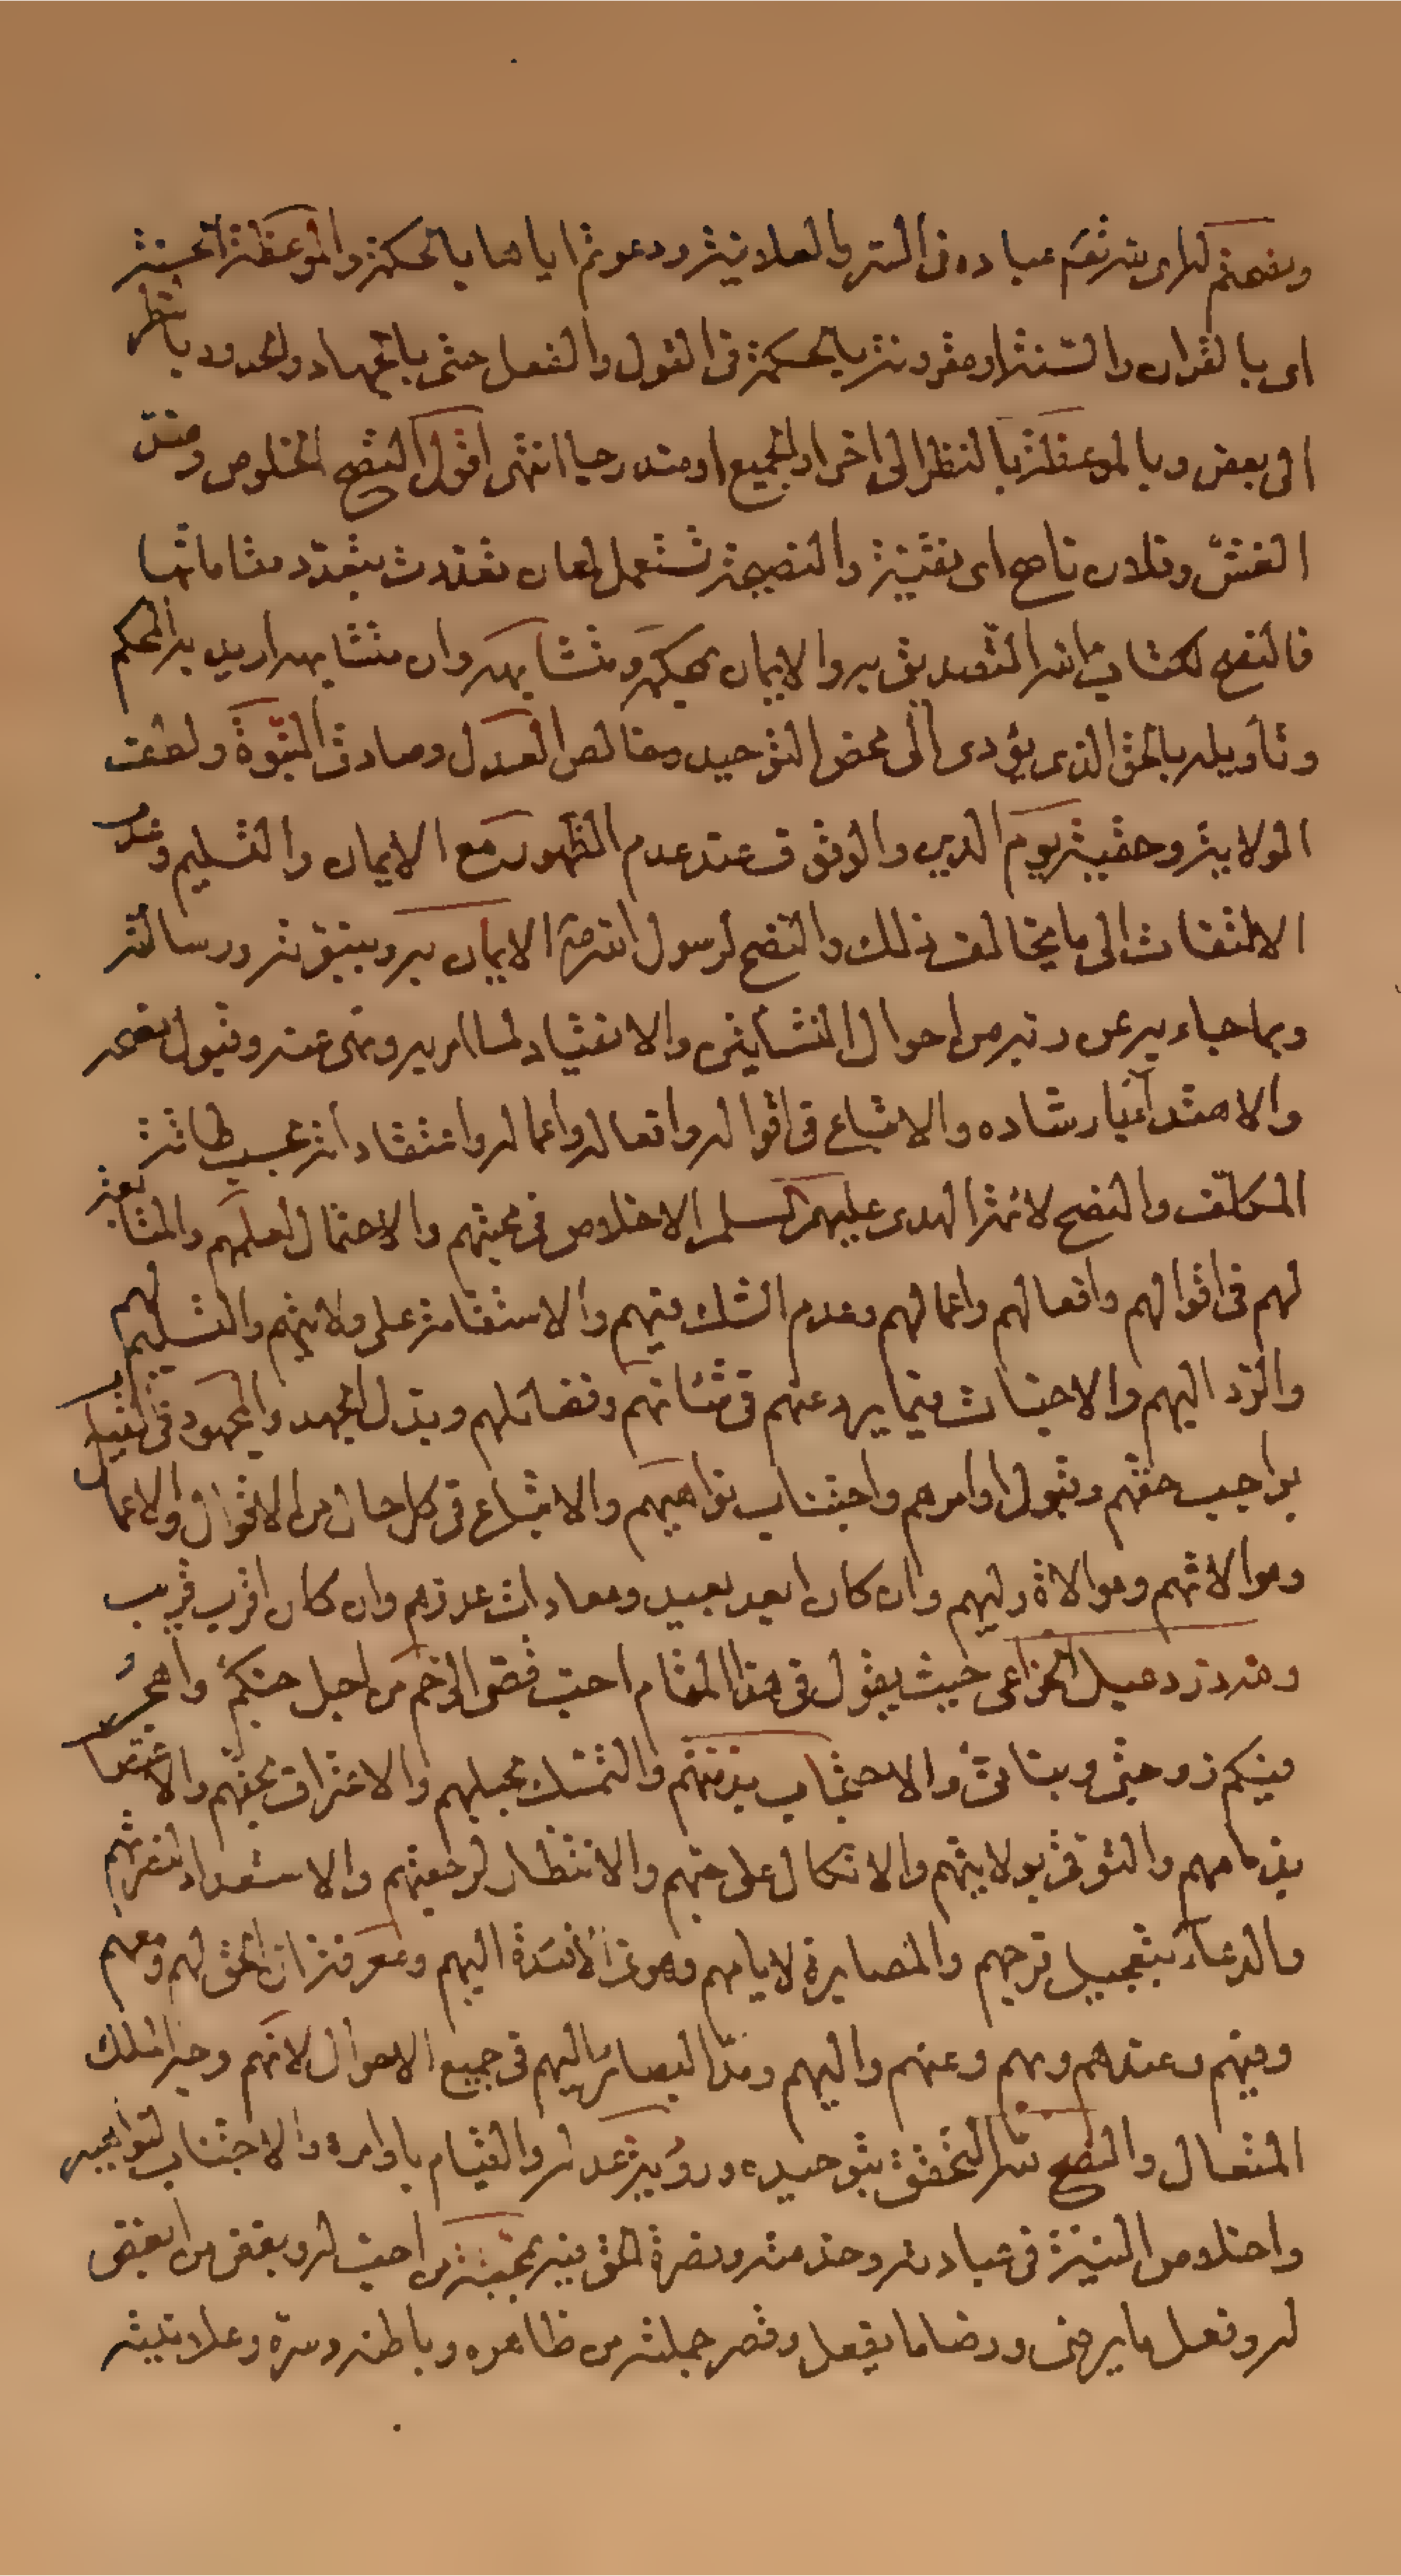 ونصحتم له اى لله نعم عباده فى السر والعلانية ودعوتم اياها بالحكمة والموعظة الحسنة
اى بالقران والسنة او مقرونة بالحكمة فى القول والفعل حتى بالجهاد والحدود بالنظر
الى بعض وبالموعظة بالنظر الى اخر او الجميع او متدرجا انتهى اقول النصح الخلوص وضد
الغش وفلان ناصح اى نقية والنصيحة تستعمل لمعان تعددت بتعدد مقاماتها
فالنصح لكتاب الله التصديق به والايمان بمحكمه ومتشابهه وان متشابهه اريد به المحكم
وتأويله بالحق الذى يؤدى الى محض التوحيد وخالص العدل وصادق النبوة ولطف
الولاية وحقية يوم الدين والوقوف عند عدم الظهور مع الايمان والتسليم وعدم
الالتفات الى ما يخالف ذلك والنصح لرسول الله ص الايمان به وبنبوته ورسالته
وبما جاء به عن ربه من احوال النشأتين والانقياد لما امر به ونهى عنه وقبول نصحه
والاهتداء بارشاده والاتباع فى اقواله وافعاله واعماله واعتقاداته بحسب طاقة
المكلف والنصح لائمة الهدى عليهم السلم الاخلاص فى محبتهم والاحتمال لعلمهم والمتابعة
لهم فى اقوالهم وافعالهم واعمالهم وعدم الشك فيهم والاستقامة على ولايتهم والتسليم لهم
والرد اليهم والاخبات فيما يرد عنهم فى شانهم وفضائلهم وبذل الجهد والمجهود فى القيام
بواجب حقهم وقبول اوامرهم واجتناب نواهيهم والاتباع فى كل حال من الاقوال والاعمال
وموالاتهم وموالاة وليهم وان كان ابعد بعيد ومعادات عدوهم وان كان اقرب قريب
ولله در دعبل الخزاعى حيث يقول فى هذا المقام احب قصى الرحم من اجل حبكم واهجر
فيكم زوجتى وبناتى والاحتجاب بذمتهم والتمسك بحبلهم والاعتراف بحقهم والاعتصام
بذمامهم والتوثق بولايتهم والاتكال على حبهم والانتظار لرجعتهم والاستعداد لنصرتهم
والدعاء بتعجيل فرجهم والمصابرة لايامهم وهوى الأفئدة اليهم ومعرفة ان الحق لهم ومعهم
وفيهم وعندهم وبهم وعنهم واليهم ومد البصائر اليهم فى جميع الاحوال لانهم وجه الملك
المتعال والنصح لله التحقق بتوحيده ورؤية عدله والقيام باوامره والاجتناب لنواهيه
واخلاص النية فى عبادته وخدمته ونصرة الحق فيه بمحبة من احب له وبغض من ابغض
له وفعل ما يرضى ورضا ما يفعل وقصر جملته من ظاهره وباطنه وسره وعلانيته